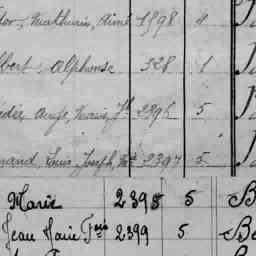 dor, Mathurin, Aimé 1898 4
lbert, Alphonse 328 1
édée Ange, Marie, Jh 2396 5
mand, Louis Joseph, 2397 5
Marie 2398 5 B
Jean Marie Fois 2399 5 Be